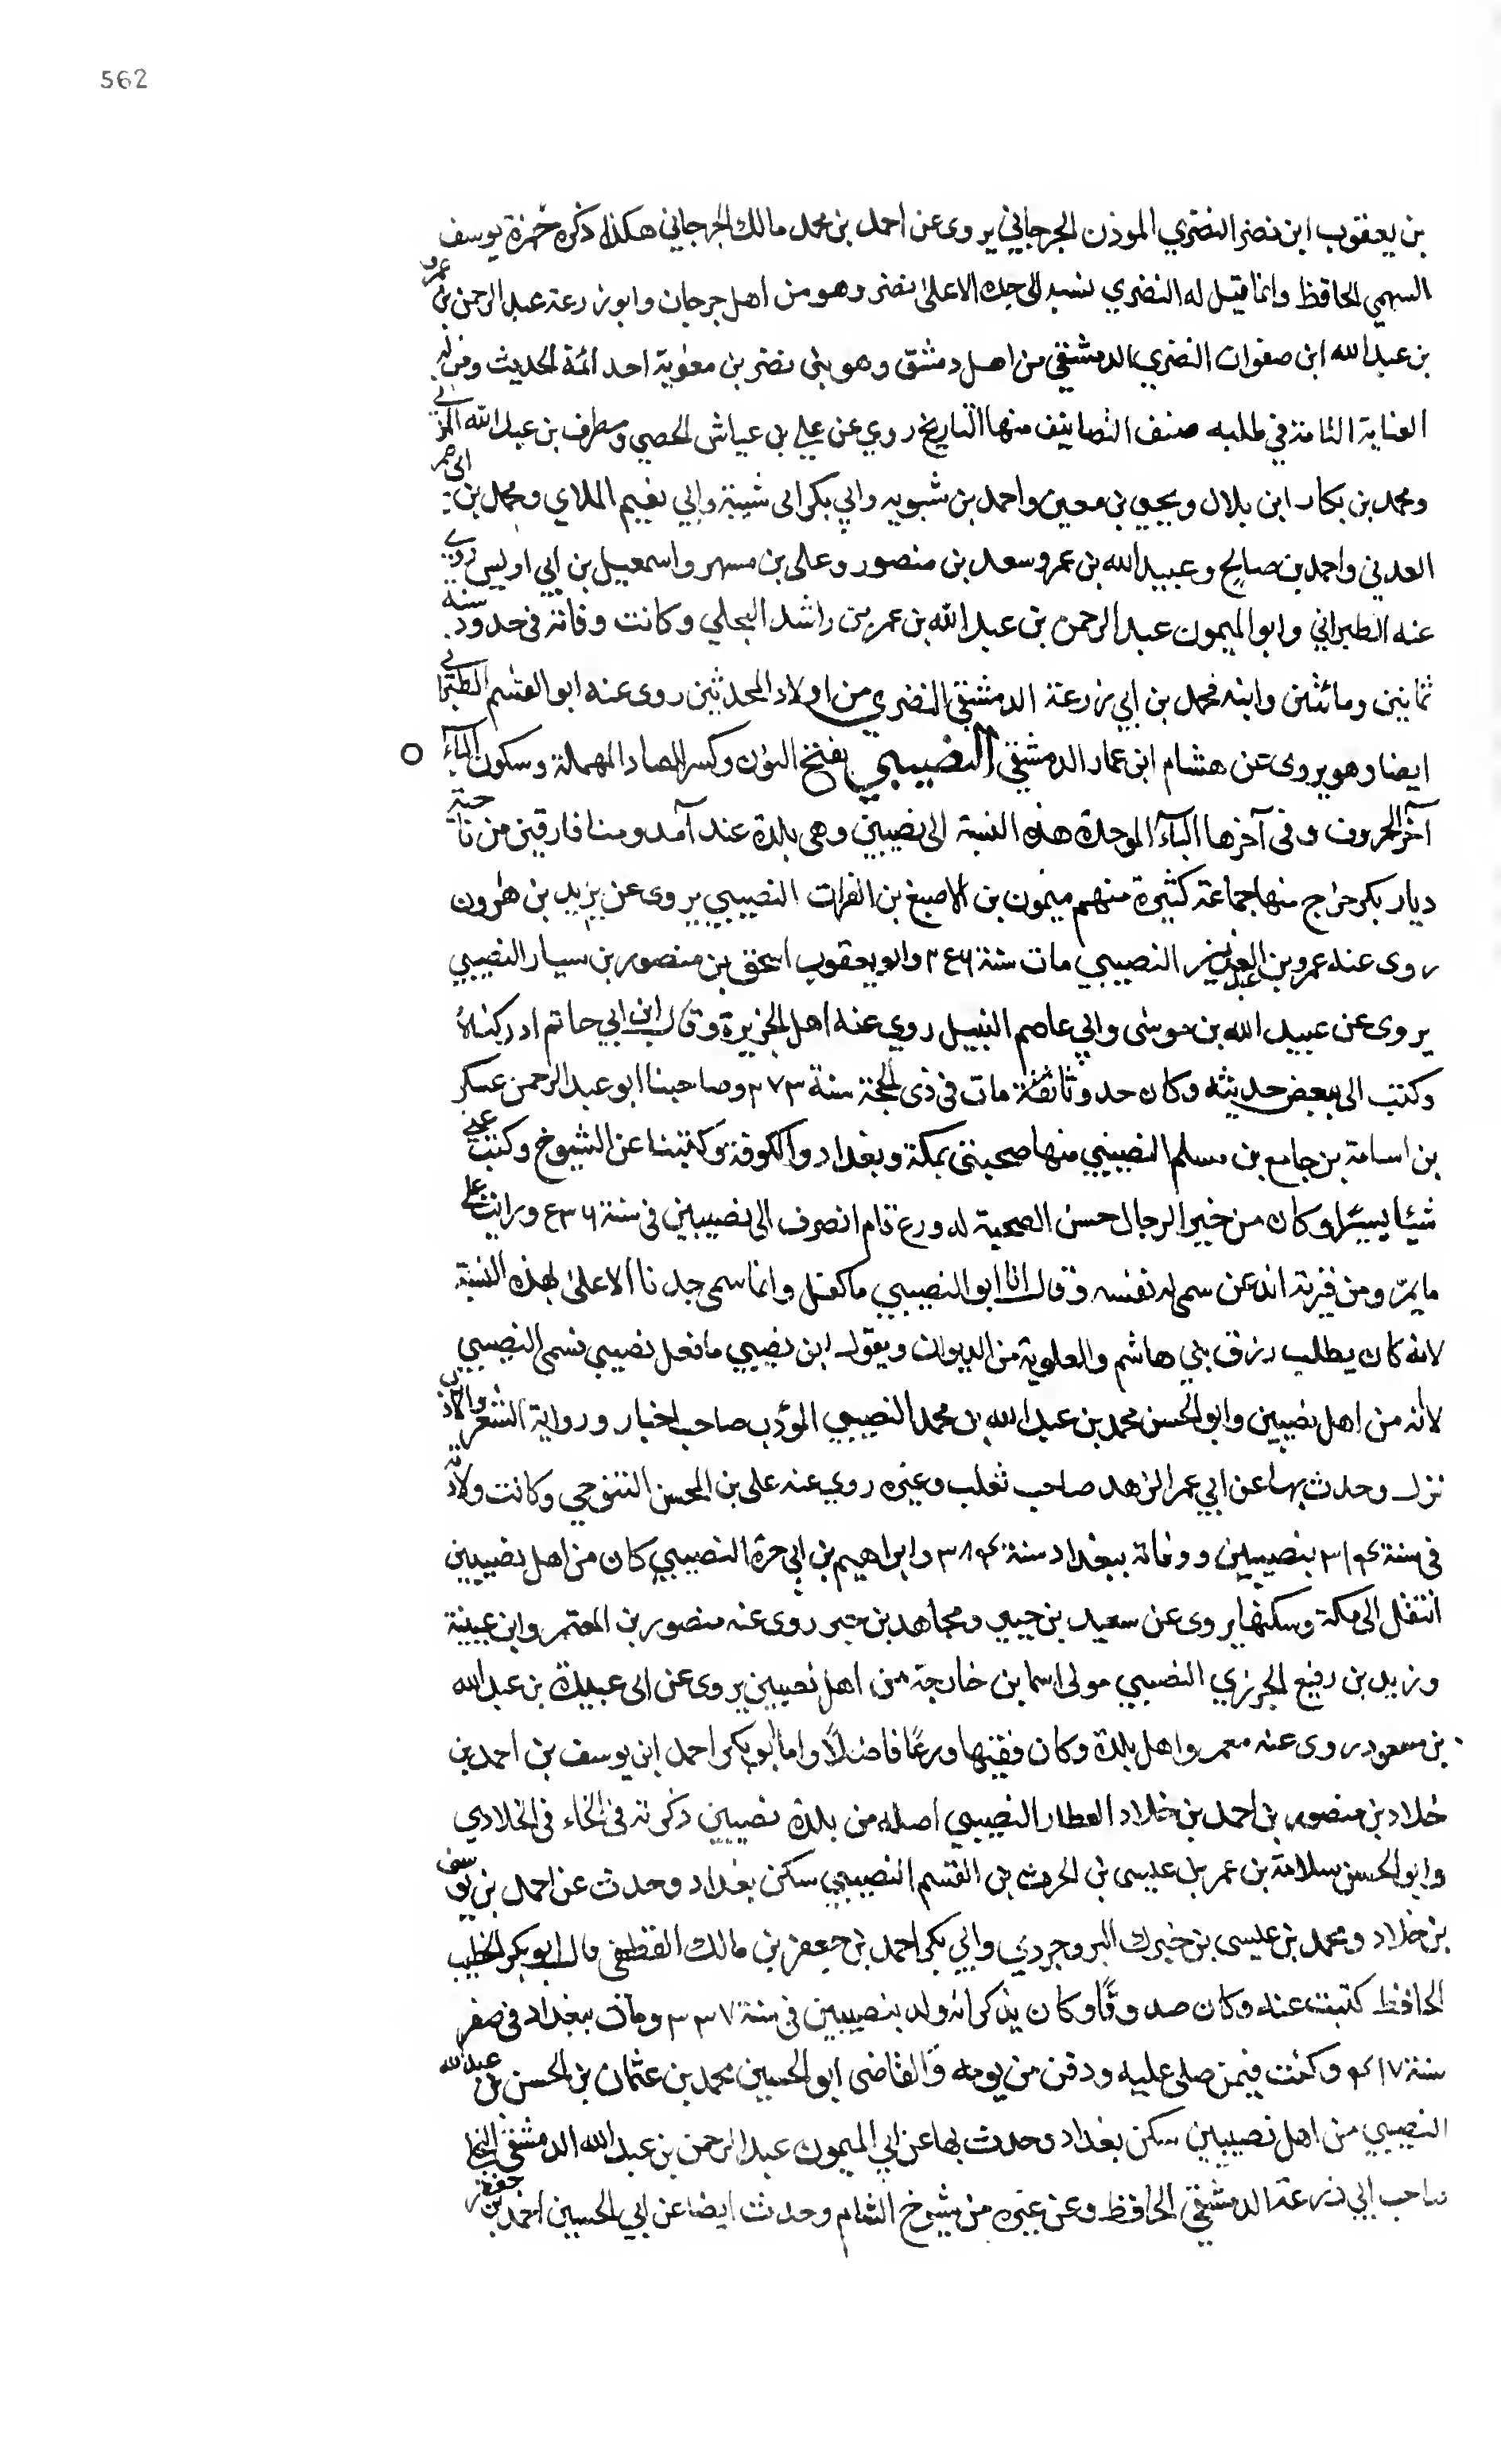 562
بن يعقوب ابن نصر النصري الموذن الجرجاني يروى عن احمد بن محمد مالك الجرجاني هكذا ذكره حمزة يوسف
السهمي الحافظ وانما قيل له النصري نسبه الى جده الاعلى نصر وهو من اهل جرجان وابو زرعة عبد الرحمن بن عمرو
بن عبد الله ابن صفوان النصري الدمشقي من اهل دمشق وهو بنى نصر بن معوية احد ائمة الحديث ومن له
العناية التامة في طلبه صنف التصانيف منها التاريخ روي عن علي بن عياش الحمصي ومطرف بن عبد الله المزني
ومحمد بن بكار ابن بلال ويحيى بن معين واحمد بن شبويه وابي بكر ابى شيبة وابي نعيم الملاي ومحمد بن ابى عمر
العدني واحمد بن صالح وعبيد الله بن عمرو سعد بن منصور وعلى بن مسهر واسمعيل بن ابي اويس روي
عنه الطبراني وابو الميمون عبد الرحمن بن عبد الله بن عمر بن راشد البجلي وكانت وفاته في حدود سنة
ثمانين ومائتين وابنه محمد بن ابي زرعة الدمشقي النصري من اولاد المحدثين روى عنه ابو القسم الطبراني
ايضا وهو يروى عن هشام ابن عمار الدمشقي النصيبي بفتح النون وكسر الصاد المهملة وسكون الياء
آخر الحروف وفى آخرها الباء الموحدة هذه النسبة الى نصيبين وهى بلدة عند آمد وميافارقين من ناحية
ديار بكر خراج منها جماعة كثيرة منهم ميمون بن الاصبغ بن الفرات النصيبي يروى عن يزيد بن هرون
روى عنه عمرو بن عبد العزيز النصيبي مات سنة ٢٤٦ وابو يعقوب اسحق بن منصور بن سيار النصيبي
يروى عن عبيد الله بن موسى وابي عاصم النبيل روي عنه اهل الجزيرة وقال ابن ابي حاتم ادركناه
وكتب الى ببعض حديثه وكان صدوقا ثقة مات في ذى الحجة سنة ٢٧٣ وصاحبنا ابو عبد الرحمن عسكر
بن اسامة بن جامع بن مسلم النصيبي منها صحبنى بمكة وبغداد والكوفة وكتبنا عن الشيوخ وكتبت عنه
شيئا يسيرا وكان من خير الرجال حسن الصحبة له ورع تام انصرف الى نصيبين في سنة ٥٣٤ ورايت على
ما يمر ومن قرية انه عن سمى له نفسه وقال انا ابو النصيبي ما كعل وانما سمى جدنا الاعلى بهذه النسبة
لانه كان يطلب رزق بني هاشم والعلوية من الديوان ويقول ابن نصيبي ما فعل نصيبي فسمى النصيبي
لأنه من اهل نصيبين وابو الحسن محمد بن عبد الله بن محمد النصيبي المؤدب صاحب اخبار ورواية الشعر
نزل وحدث بها عن ابي عمر الزاهد صاحب ثعلب وغيره روي عنه على بن المحسن التنوخي وكانت ولادته
في سنة ٣١٤ بنصيبين ووفاته ببغداد سنة ٣٨٤ وابراهيم بن ابي حرة النصيبي كان من اهل نصيبين
انتقل الى مكة وسكنها يروى عن سعيد بن جبير ومجاهد بن جبر روى عنه منصور بن المعتمر وابن عيينة
وزيد بن رفيع الجزري النصيبي مولى اسما بن خارجة من اهل نصيبين يروى عن ابى عبيدة بن عبد الله
بن مسعود روى عنه معمر واهل بلدة وكان فقيها ورعا فاضلا واما ابو بكر احمد ابن يوسف بن احمد بن
خلاد بن منصور بن احمد بن خلاد العطار النصيبي اصله من بلدة نصيبين ذكرته في الخاء في الخلادي
وابو الحسن سلامة بن عمر بن عيسى بن الحرث بن القسم النصيبي سكن بغداد وحدث عن احمد بن يوسف
بن خلاد ومحمد بن عيسى بن خيرك البروجردي وابي بكر احمد بن جعفر بن مالك القطيعي قال ابو بكر الخطيب
الحافظ كتبت عنه وكان صدوقا وكان يذكر انه ولد بنصيبين في سنة ٣٣٧ ومات ببغداد في صفر
سنة ٤١٧ وكنت فيمن صلى عليه ودفن من يومه والقاضى ابو الحسين محمد بن عثمان بن الحسن بن عبد الله
النصيبي من اهل نصيبين سكن بغداد وحدث بها عن ابي الميمون عبد الرحمن بن عبد الله الدمشقي البجلي
صاحب ابي زرعة الدمشقي الحافظ وعن غيره من شيوخ الشام وحدث ايضا عن ابي الحسين احمد بن جعفر